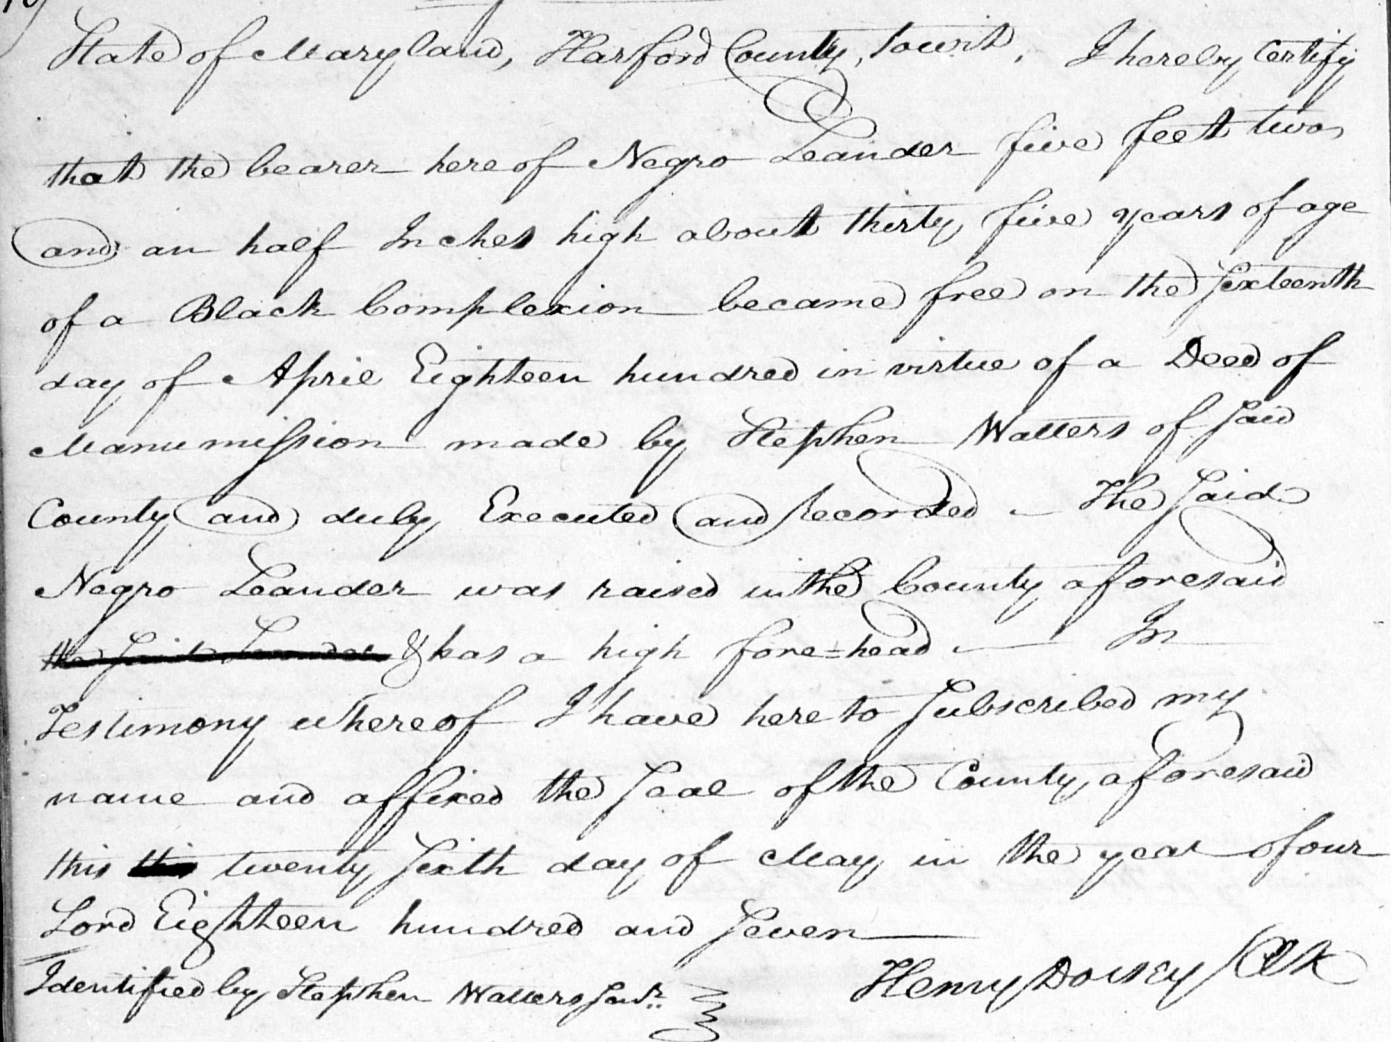 State of Maryland, Harford County, towit, I hereby Certify
that the bearer here of Negro Leander five feet two
and an half Inches high about thirty five years of age
of a Black Complexion became free on the Sixteenth
day of April Eighteen hundred in virtue of a Deed of
Manumission made by Stephen Watters of Said
County and duly Executed and Recorded — The Said
Negro Leander was raised in the County aforesaid
the Said Leander & has a high fore=head — In
Testimony whereof I have here to Subscribed my
name and affixed the Seal of the County aforesaid
this this twenty Sixth day of May in the year of our
Lord Eighteen hundred and Seven
Identified by Stephen Watters Henry Dorsey Clk